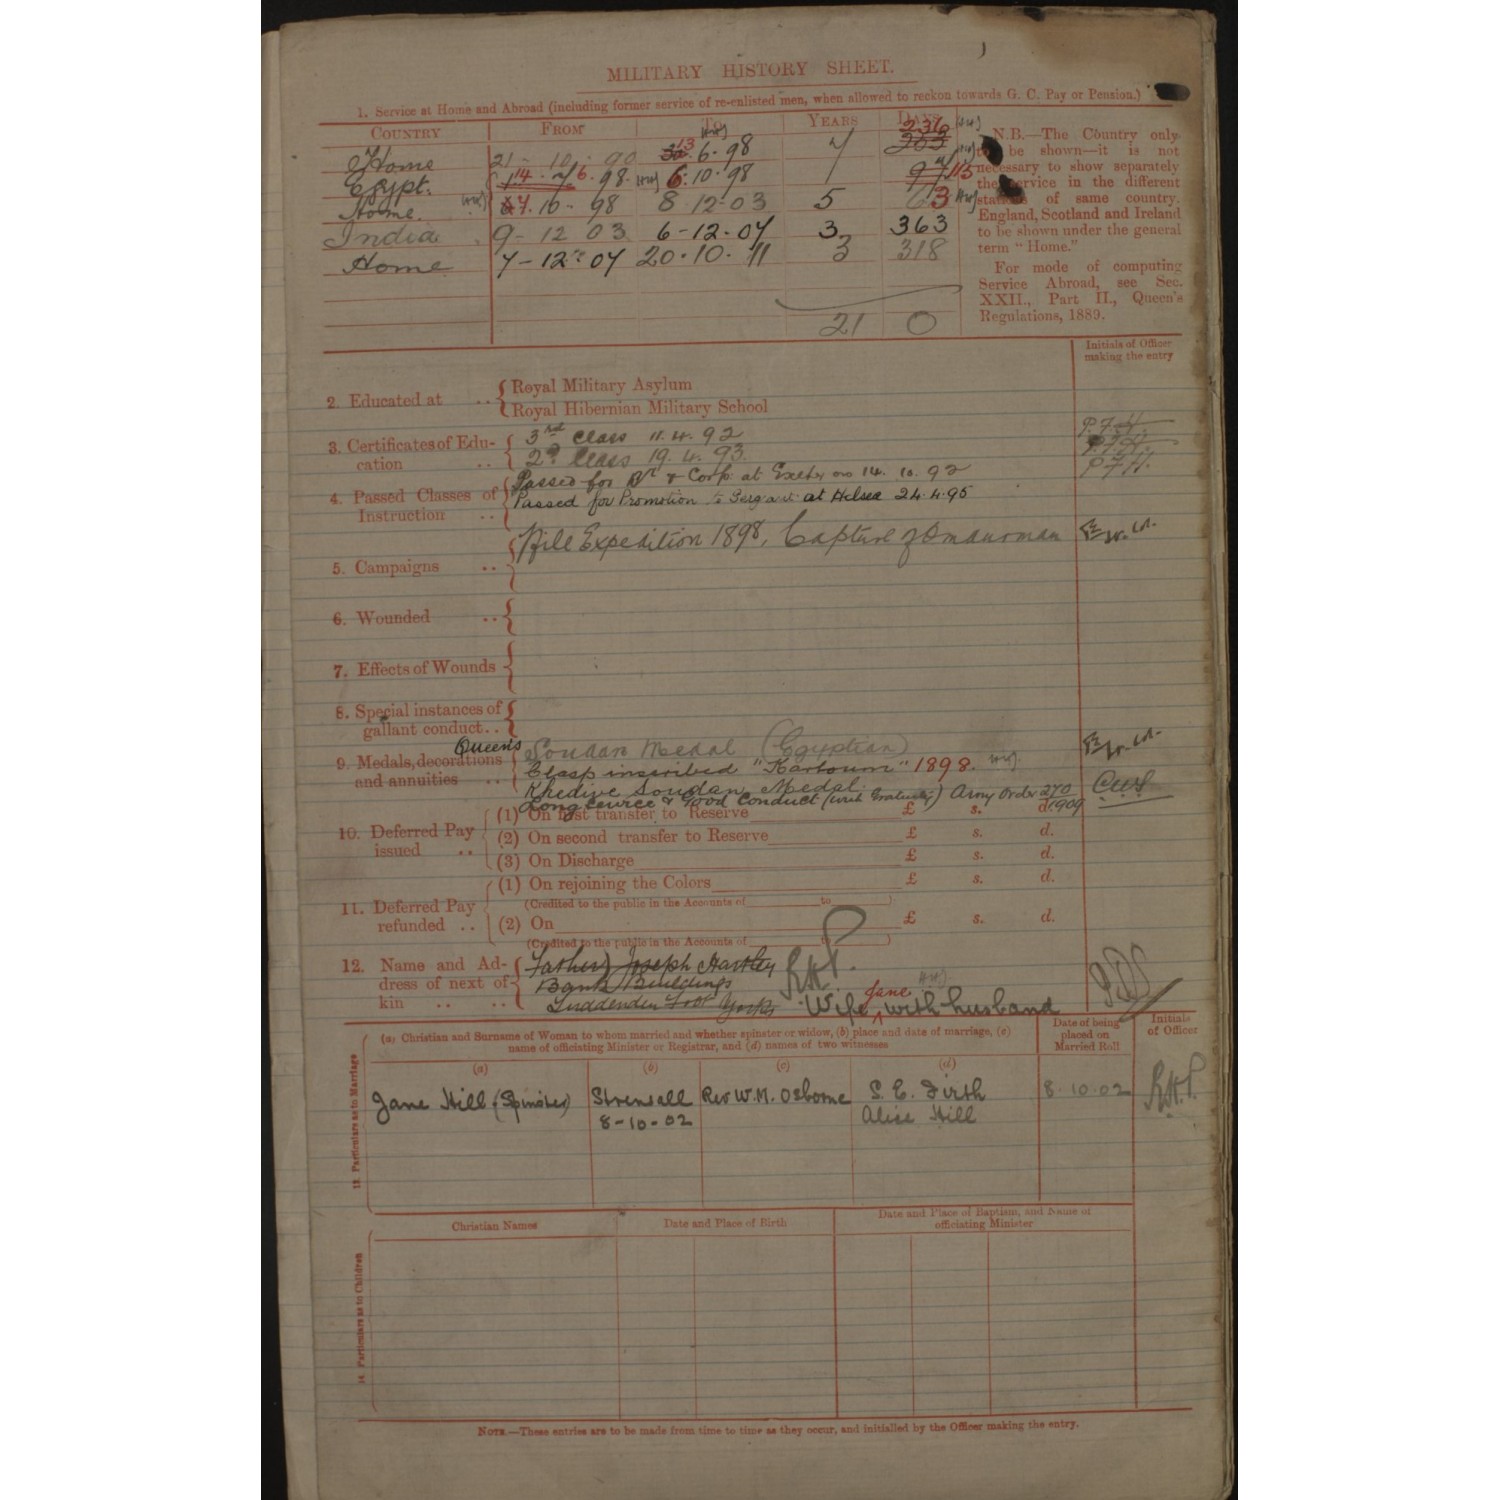 MILITARY HISTORY SHEET.
1. Service at Home and Abroad (including former service of re-enlisted men, when allowed to reckon towards G. C. Pay or Pension.)
COUNTRY FROM TO YEARS DAYS
Home 21 - 10 - 90 13 . 6 . 98 7 236
Egypt. 14 . 6 . 98 6 . 10 . 98 115
Home. 7 . 10 - 98 8 . 12 . 03 5 63
India 9 - 12 03 6 - 12 . 07 3 363
Home 7 - 12 . 07 20 . 10 . 11 3 318
21 0
N.B.—The Country only
to be shown—it is not
necessary to show separately
the service in the different
stations of same country.
England, Scotland and Ireland
to be shown under the general
term "Home."
For mode of computing
Service Abroad, see Sec.
XXII., Part II., Queen's
Regulations, 1889.
Initials of Officer
making the entry
2. Educated at .. Royal Military Asylum
Royal Hibernian Military School
3. Certificates of Edu-
cation .. 3rd Class 11. 4. 92 P.F.H.
2nd Class 19. 4. 93.
4. Passed Classes of
Instruction .. Passed for Br & Corpl at Exeter on 14. 10. 92 P.F.H.
Passed for Promotion to Sergeant at Hilsea 24.4.95
5. Campaigns .. Nile Expedition 1898, Capture of Omdurman
6. Wounded ..
7. Effects of Wounds
8. Special instances of
gallant conduct..
9. Medals, decorations
and annuities .. Queen's Soudan Medal (Egyptian)
Clasp inscribed "Kartoum" 1898.
Khedive Soudan Medal.
Long Service & Good Conduct (with Gratuity) Army Order 270 1909
10. Deferred Pay
issued .. (1) On first transfer to Reserve £ s. d.
(2) On second transfer to Reserve £ s. d.
(3) On Discharge £ s. d.
11. Deferred Pay
refunded .. (1) On rejoining the Colors £ s. d.
(Credited to the public in the Accounts of to ).
(2) On £ s. d.
(Credited to the public in the Accounts of to )
12. Name and Ad-
dress of next of
kin .. .. Father) Joseph Hartley
Bank Buildings
Luddenden Foot Yorks
Wife Jane with husband
13. Particulars as to Marriage
(a) Christian and Surname of Woman to whom married and whether spinster or widow, (b) place and date of marriage, (c)
name of officiating Minister or Registrar, and (d) names of two witnesses
Date of being
placed on
Married Roll
Initials
of Officer
(a) (b) (c) (d)
Jane Hill (Spinster) Strensall Rev W.M. Osborne S. E. Firth 8 . 10 . 02
8 - 10 - 02 Alice Hill
14. Particulars as to Children
Christian Names Date and Place of Birth Date and Place of Baptism, and Name of
officiating Minister
NOTE.—These entries are to be made from time to time as they occur, and initialled by the Officer making the entry.